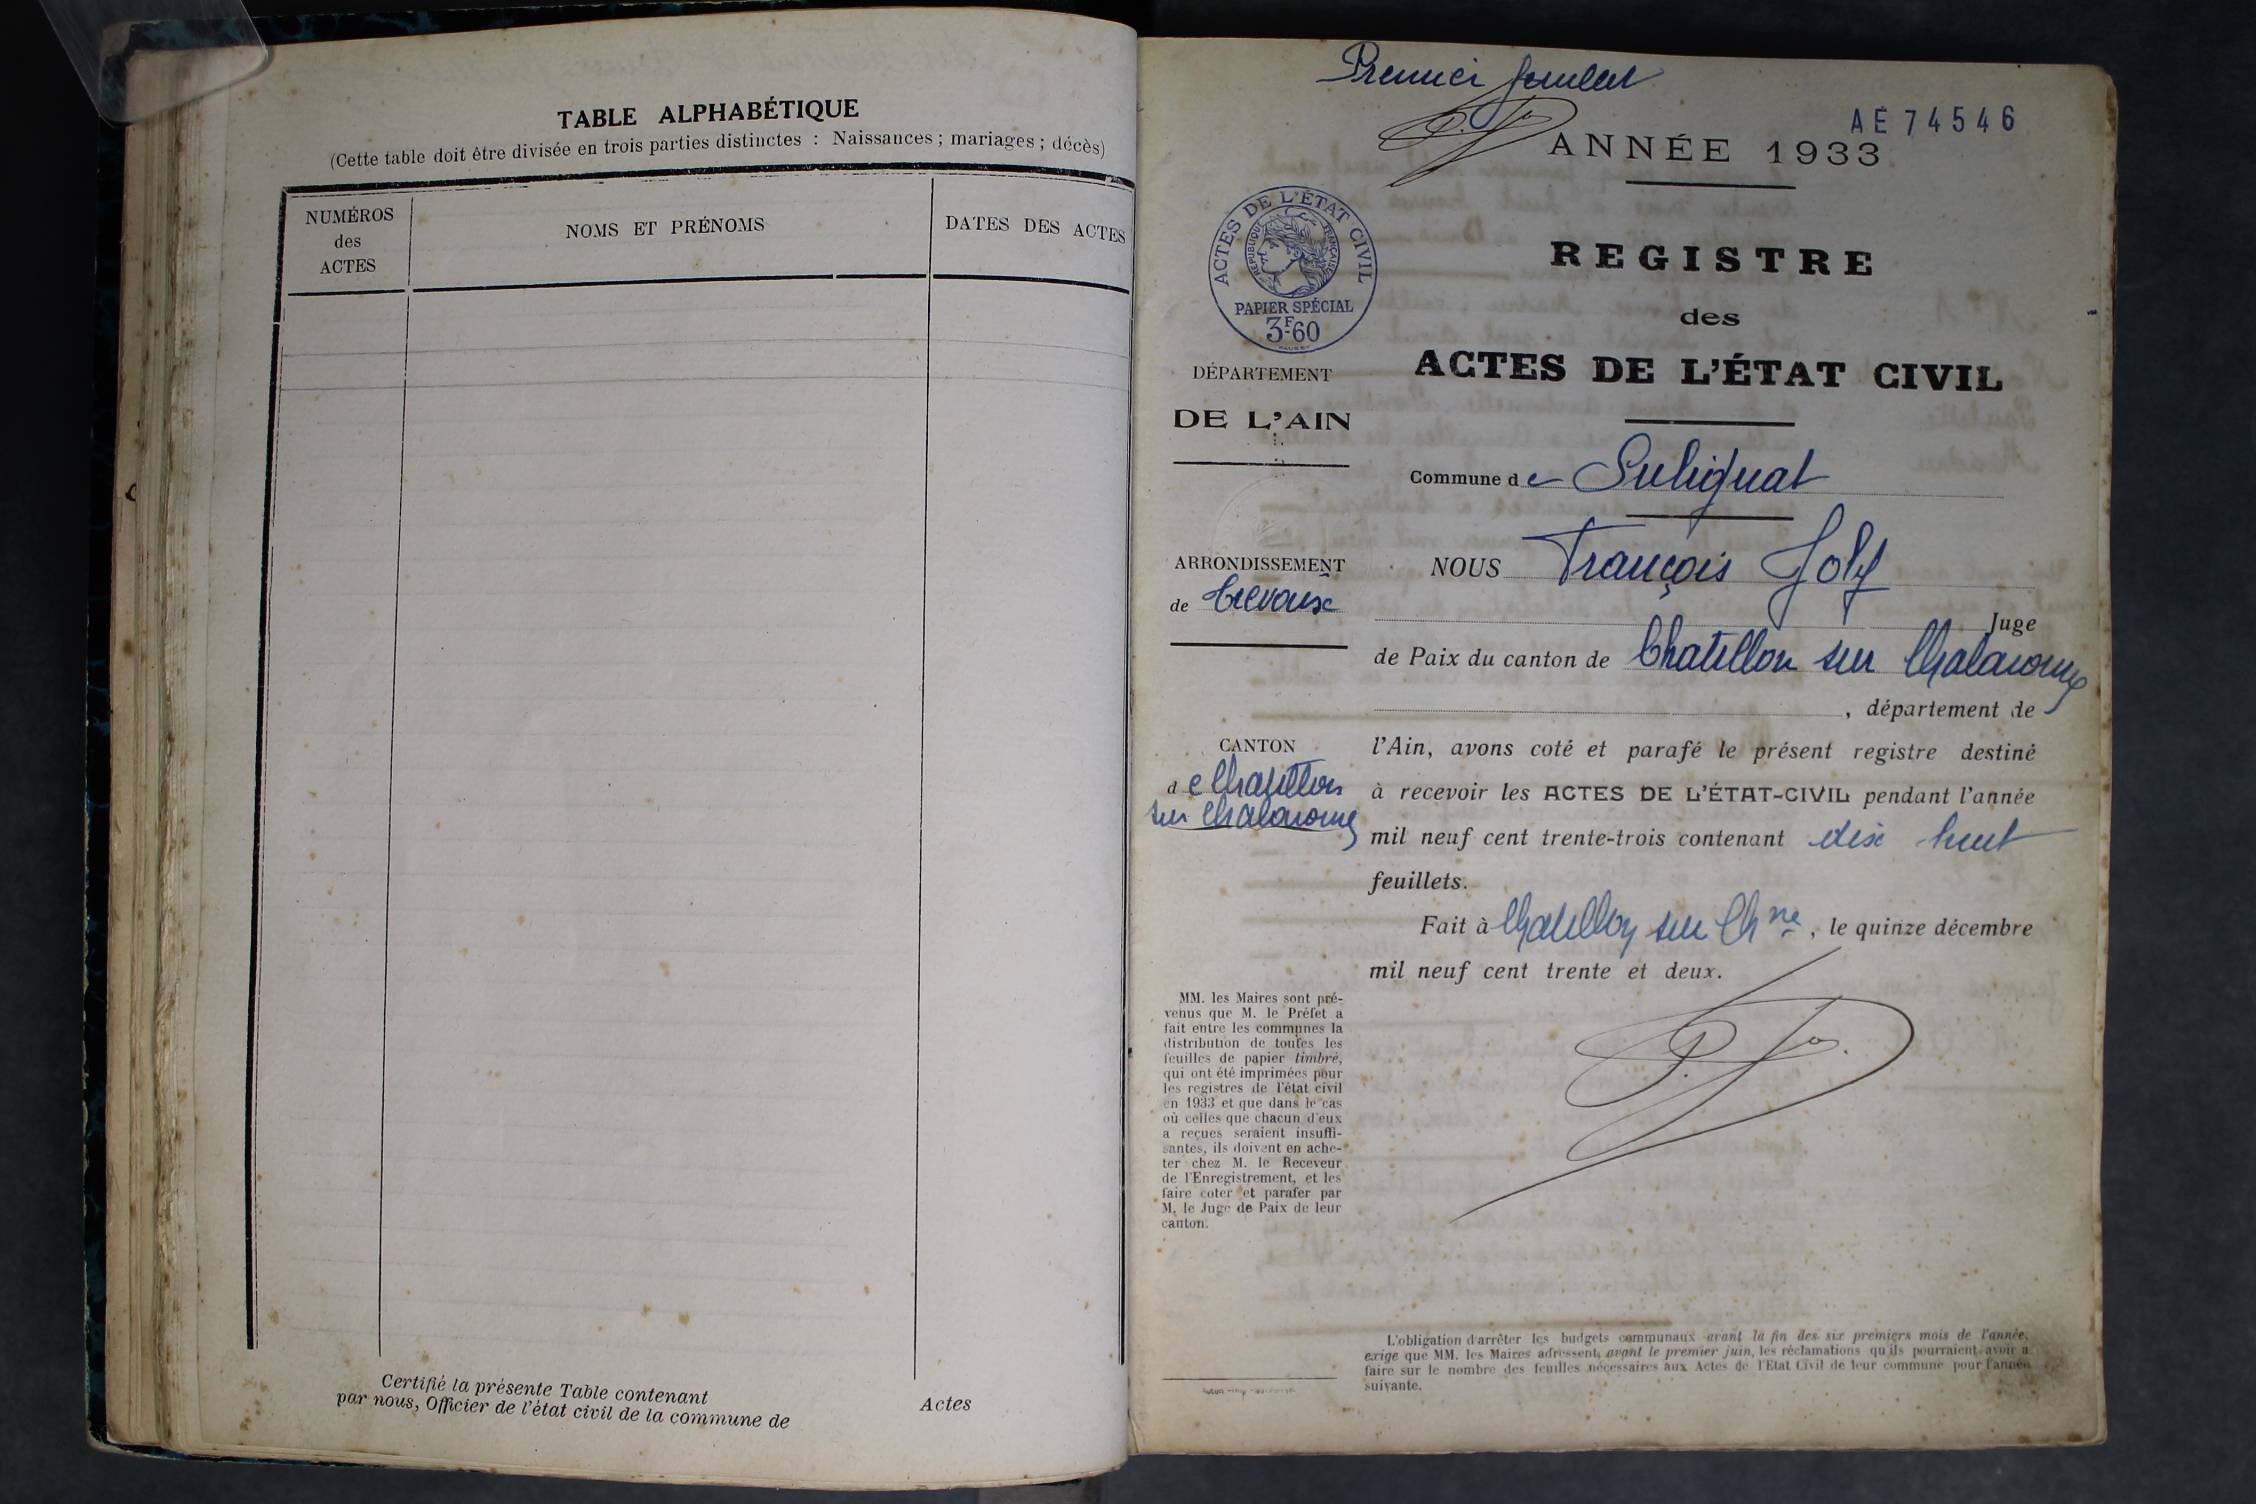 TABLE ALPHABÉTIQUE
(Cette table doit être divisée en trois parties distinctes : Naissances ; mariages ; décès)
NUMÉROS
des
ACTES
NOMS ET PRÉNOMS
DATES DES ACTES
Certifié la présente Table contenant
Actes
par nous, Officier de l'état civil de la commune de
Premier feuillet
AE 74546
ANNÉE 1933
ACTES DE L'ÉTAT CIVIL
RÉPUBLIQUE FRANÇAISE
PAPIER SPÉCIAL
3F60
REGISTRE
des
ACTES DE L'ÉTAT CIVIL
DÉPARTEMENT
DE L'AIN
Commune de Sulignat
ARRONDISSEMENT
de Trévoux
NOUS François Joly
Juge
de Paix du canton de Chatillon sur Chalaronne
, département de
CANTON
de Chatillon
sur Chalaronne
l'Ain, avons coté et parafé le présent registre destiné
à recevoir les ACTES DE L'ÉTAT-CIVIL pendant l'année
mil neuf cent trente-trois contenant dix huit
feuillets.
Fait à Chatillon sur Ch ne, le quinze décembre
mil neuf cent trente et deux.
MM. les Maires sont pré-
venus que M. le Préfet a
fait entre les communes la
distribution de toutes les
feuilles de papier timbré,
qui ont été imprimées pour
les registres de l'état civil
en 1933 et que dans le cas
où celles que chacun d'eux
a reçues seraient insuffi-
santes, ils doivent en ache-
ter chez M. le Receveur
de l'Enregistrement, et les
faire coter et parafer par
M. le Juge de Paix de leur
canton.
L'obligation d'arrêter les budgets communaux avant la fin des six premiers mois de l'année,
exige que MM. les Maires adressent, avant le premier juin, les réclamations qu'ils pourraient avoir à
faire sur le nombre des feuilles nécessaires aux Actes de l'Etat Civil de leur commune pour l'année
suivante.